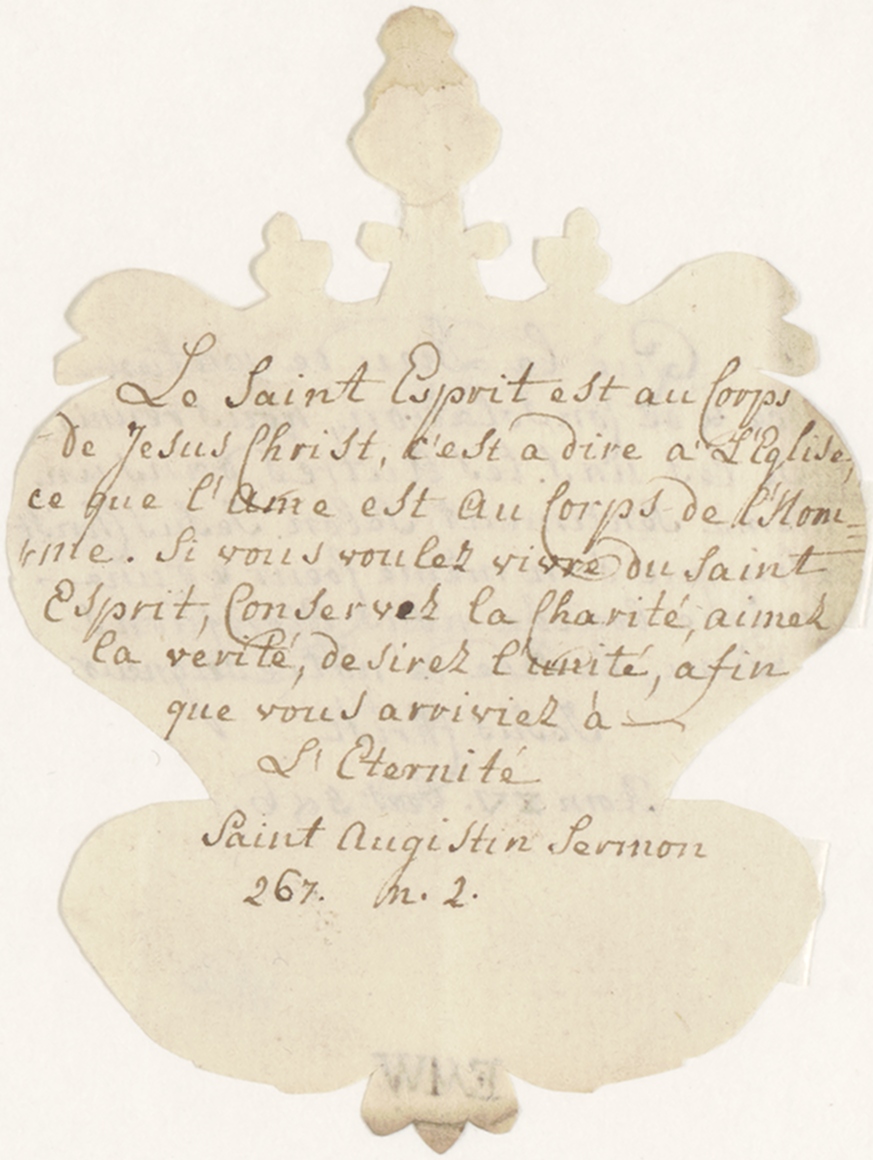 Le Saint Esprit est au Corps
de Jesus Christ, c'est a dire a L'Eglise,
ce que l'Ame est au Corps de l'Hom=
me. Si vous voulez vivre du Saint
Esprit, Conservez la Charité, aimez
la verité, desirez l'unité, afin
que vous arriviez à
L'Eternité
Saint Augistin Sermon
267. n. 2.
EMW